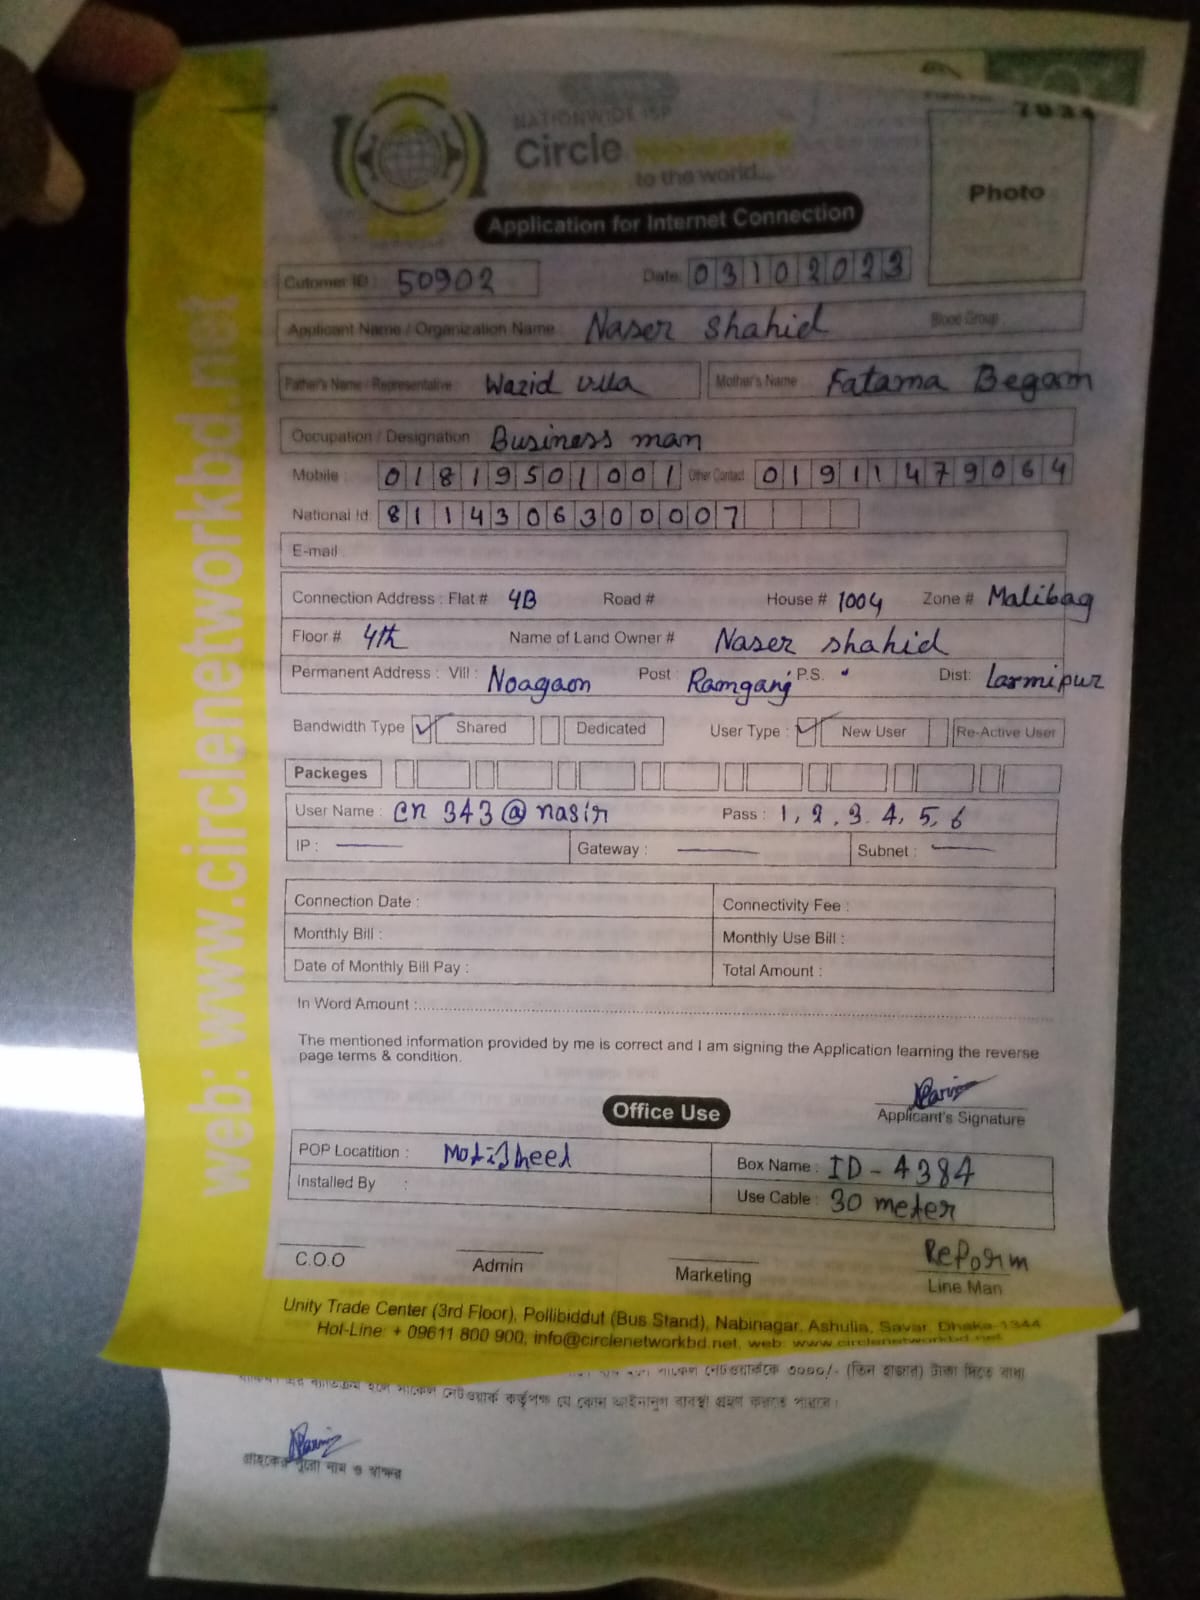 7034
NATIONWIDE ISP
Circle Network
to the world...
Photo
Application for Internet Connection
Cutomer ID : 50902 Date: 03102023
Applicant Name / Organization Name : Naser Shahid Blood Group
Father's Name / Representative : Wazid ulla Mother's Name Fatama Begam
Occupation / Designation Business man
Mobile : 01819501001 Other Contact 01911479064
National Id: 8114306300007
E-mail
Connection Address : Flat # 4B Road # House # 1004 Zone # Malibag
Floor # 4th Name of Land Owner # Naser shahid
Permanent Address : Vill : Noagaon Post : Ramganj P.S. Dist: Laxmipur
Bandwidth Type Shared Dedicated User Type : New User Re-Active User
Packeges
User Name : cn 343@nasir Pass : 1, 2, 3. 4, 5, 6
IP : Gateway : Subnet :
Connection Date : Connectivity Fee :
Monthly Bill : Monthly Use Bill :
Date of Monthly Bill Pay : Total Amount :
In Word Amount :
The mentioned information provided by me is correct and I am signing the Application learning the reverse
page terms & condition.
Applicant's Signature
Office Use
POP Locatition : Motijheel Box Name : ID - 4384
Installed By : Use Cable : 30 meter
Reform
C.O.O Admin Marketing Line Man
Unity Trade Center (3rd Floor), Pollibiddut (Bus Stand), Nabinagar, Ashulia, Savar, Dhaka-1344
Hot-Line: + 09611 800 900, info@circlenetworkbd.net, web: www.circlenetworkbd.net
web: www.circlenetworkbd.net
সার্কেল নেটওয়ার্ককে ৩০০০/- (তিন হাজার) টাকা দিতে বাধ্য
হলে সার্কেল নেটওয়ার্ক কর্তৃপক্ষ যে কোন আইনানুগ ব্যবস্থা গ্রহণ করতে পারবে।
গ্রাহকের পুরো নাম ও স্বাক্ষর